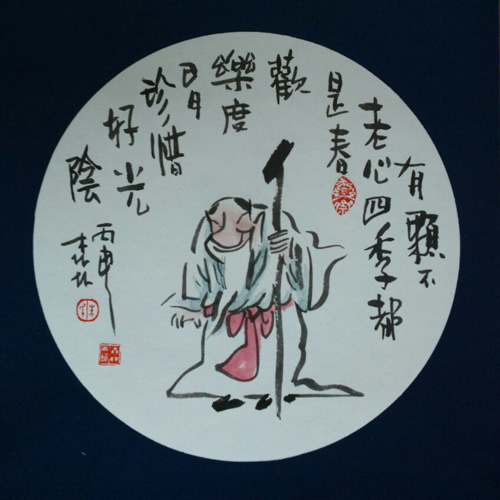 有顆不
老心四季都
是春
歡
樂度
日月
珍惜
好光
陰
丙申